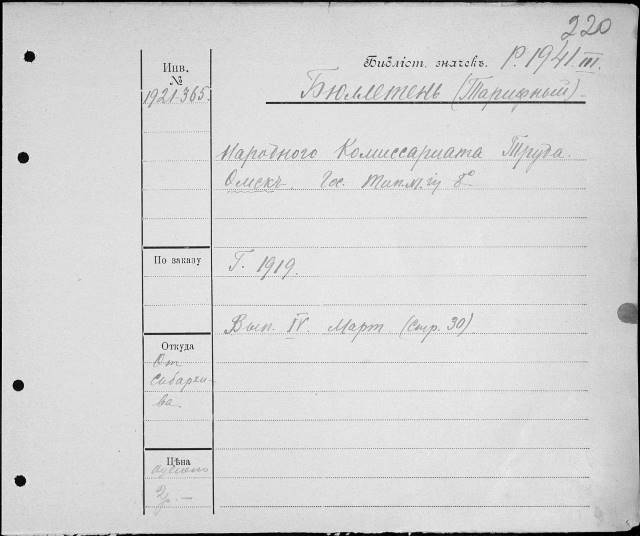 220
Библіот. значекъ. Р. 1941 III.
Инв.
№
1921-365.
Бюллетень (Тарифный)
Народного Комиссариата Труда.
Омскъ. Гос. 8°
По заказу
Г. 1919.
Вып. IV. Март (стр. 30)
Откуда
От
Сибархи-
ва.
Цѣна
2р. —